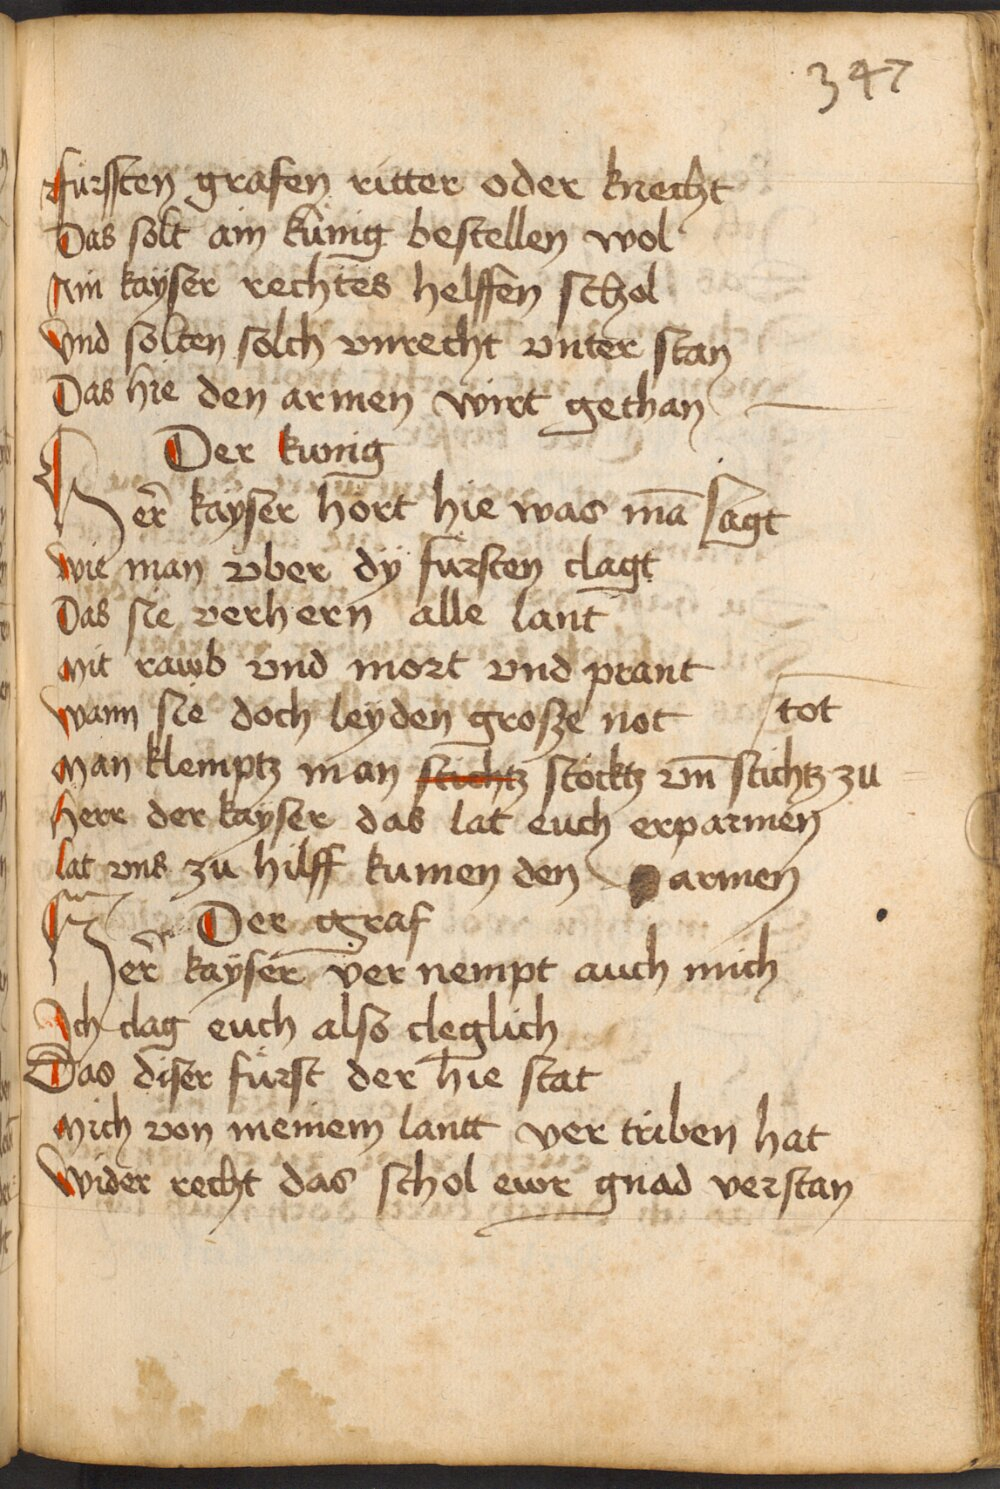 347
Fürssten grafen ritter oder knecht
Das solt ain künig bestellen wol
Ain kayser rechtes helffen schol
Vnd solten solch vnrecht vnter stan
Das hie den armen wirt gethan
Der kunig
Her̃ kayser hört hie was mā sagt
wie man vber dÿ fürsten clagt
Das sie verhern alle lant
Mit rawb vnd mort vnd prant
wann sie doch leyden große not
tot
Man klemptz man stichtz stöcktz vm̄ stichtz zu
Herr der kayser das lat euch erparmen
lat vns zu hilff kumen den armen
Der graf
Her̃ kayser ver nempt auch mich
Ich clag euch also cleglich
Das diser fürst der hie stat
Mich von meinem lantt ver triben hat
Wider recht das schol ewr gnad verstan